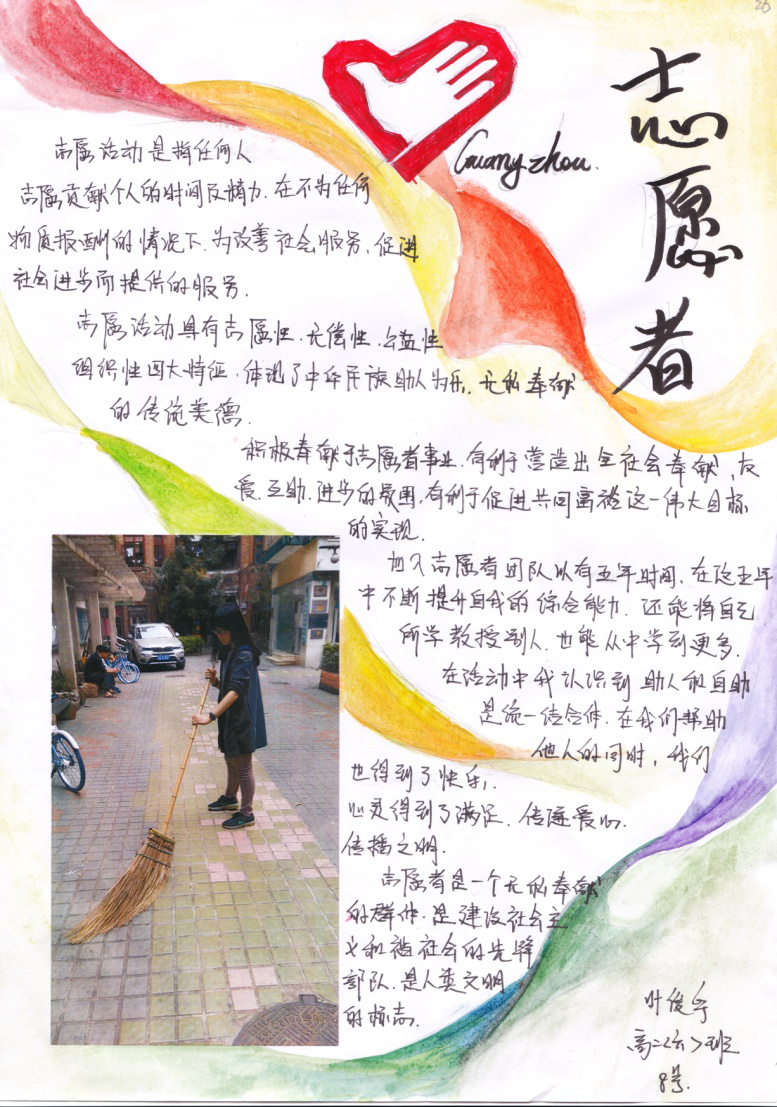 志愿者
Guangzhou.
志愿活动是指任何人
志愿贡献个人的时间及精力.在不为任何
物质报酬的情况下.为改善社会服务,促进
社会进步而提供的服务.
志愿活动具有志愿性.无偿性.公益性
组织性四大特征.体现了中华民族助人为乐.无私奉献
的传统美德.
积极奉献于志愿者事业.有利于营造出全社会奉献、友
爱.互助.进步的氛围,有利于促进共同富裕这一伟大目标
的实现.
加入志愿者团队以有五年时间.在这五年
中不断提升自我的综合能力.还能将自己
所学教授别人.也能从中学到更多.
在活动中我认识到助人和自助
是统一结合体.在我们帮助
他人的同时,我们
也得到了快乐,
心灵得到了满足.传递爱心.
传播文明.
志愿者是一个无私奉献
的群体.是建设社会主
义和谐社会的先锋
部队.是人类文明
的标志.
叶俊
高二<2>班
8号.
26